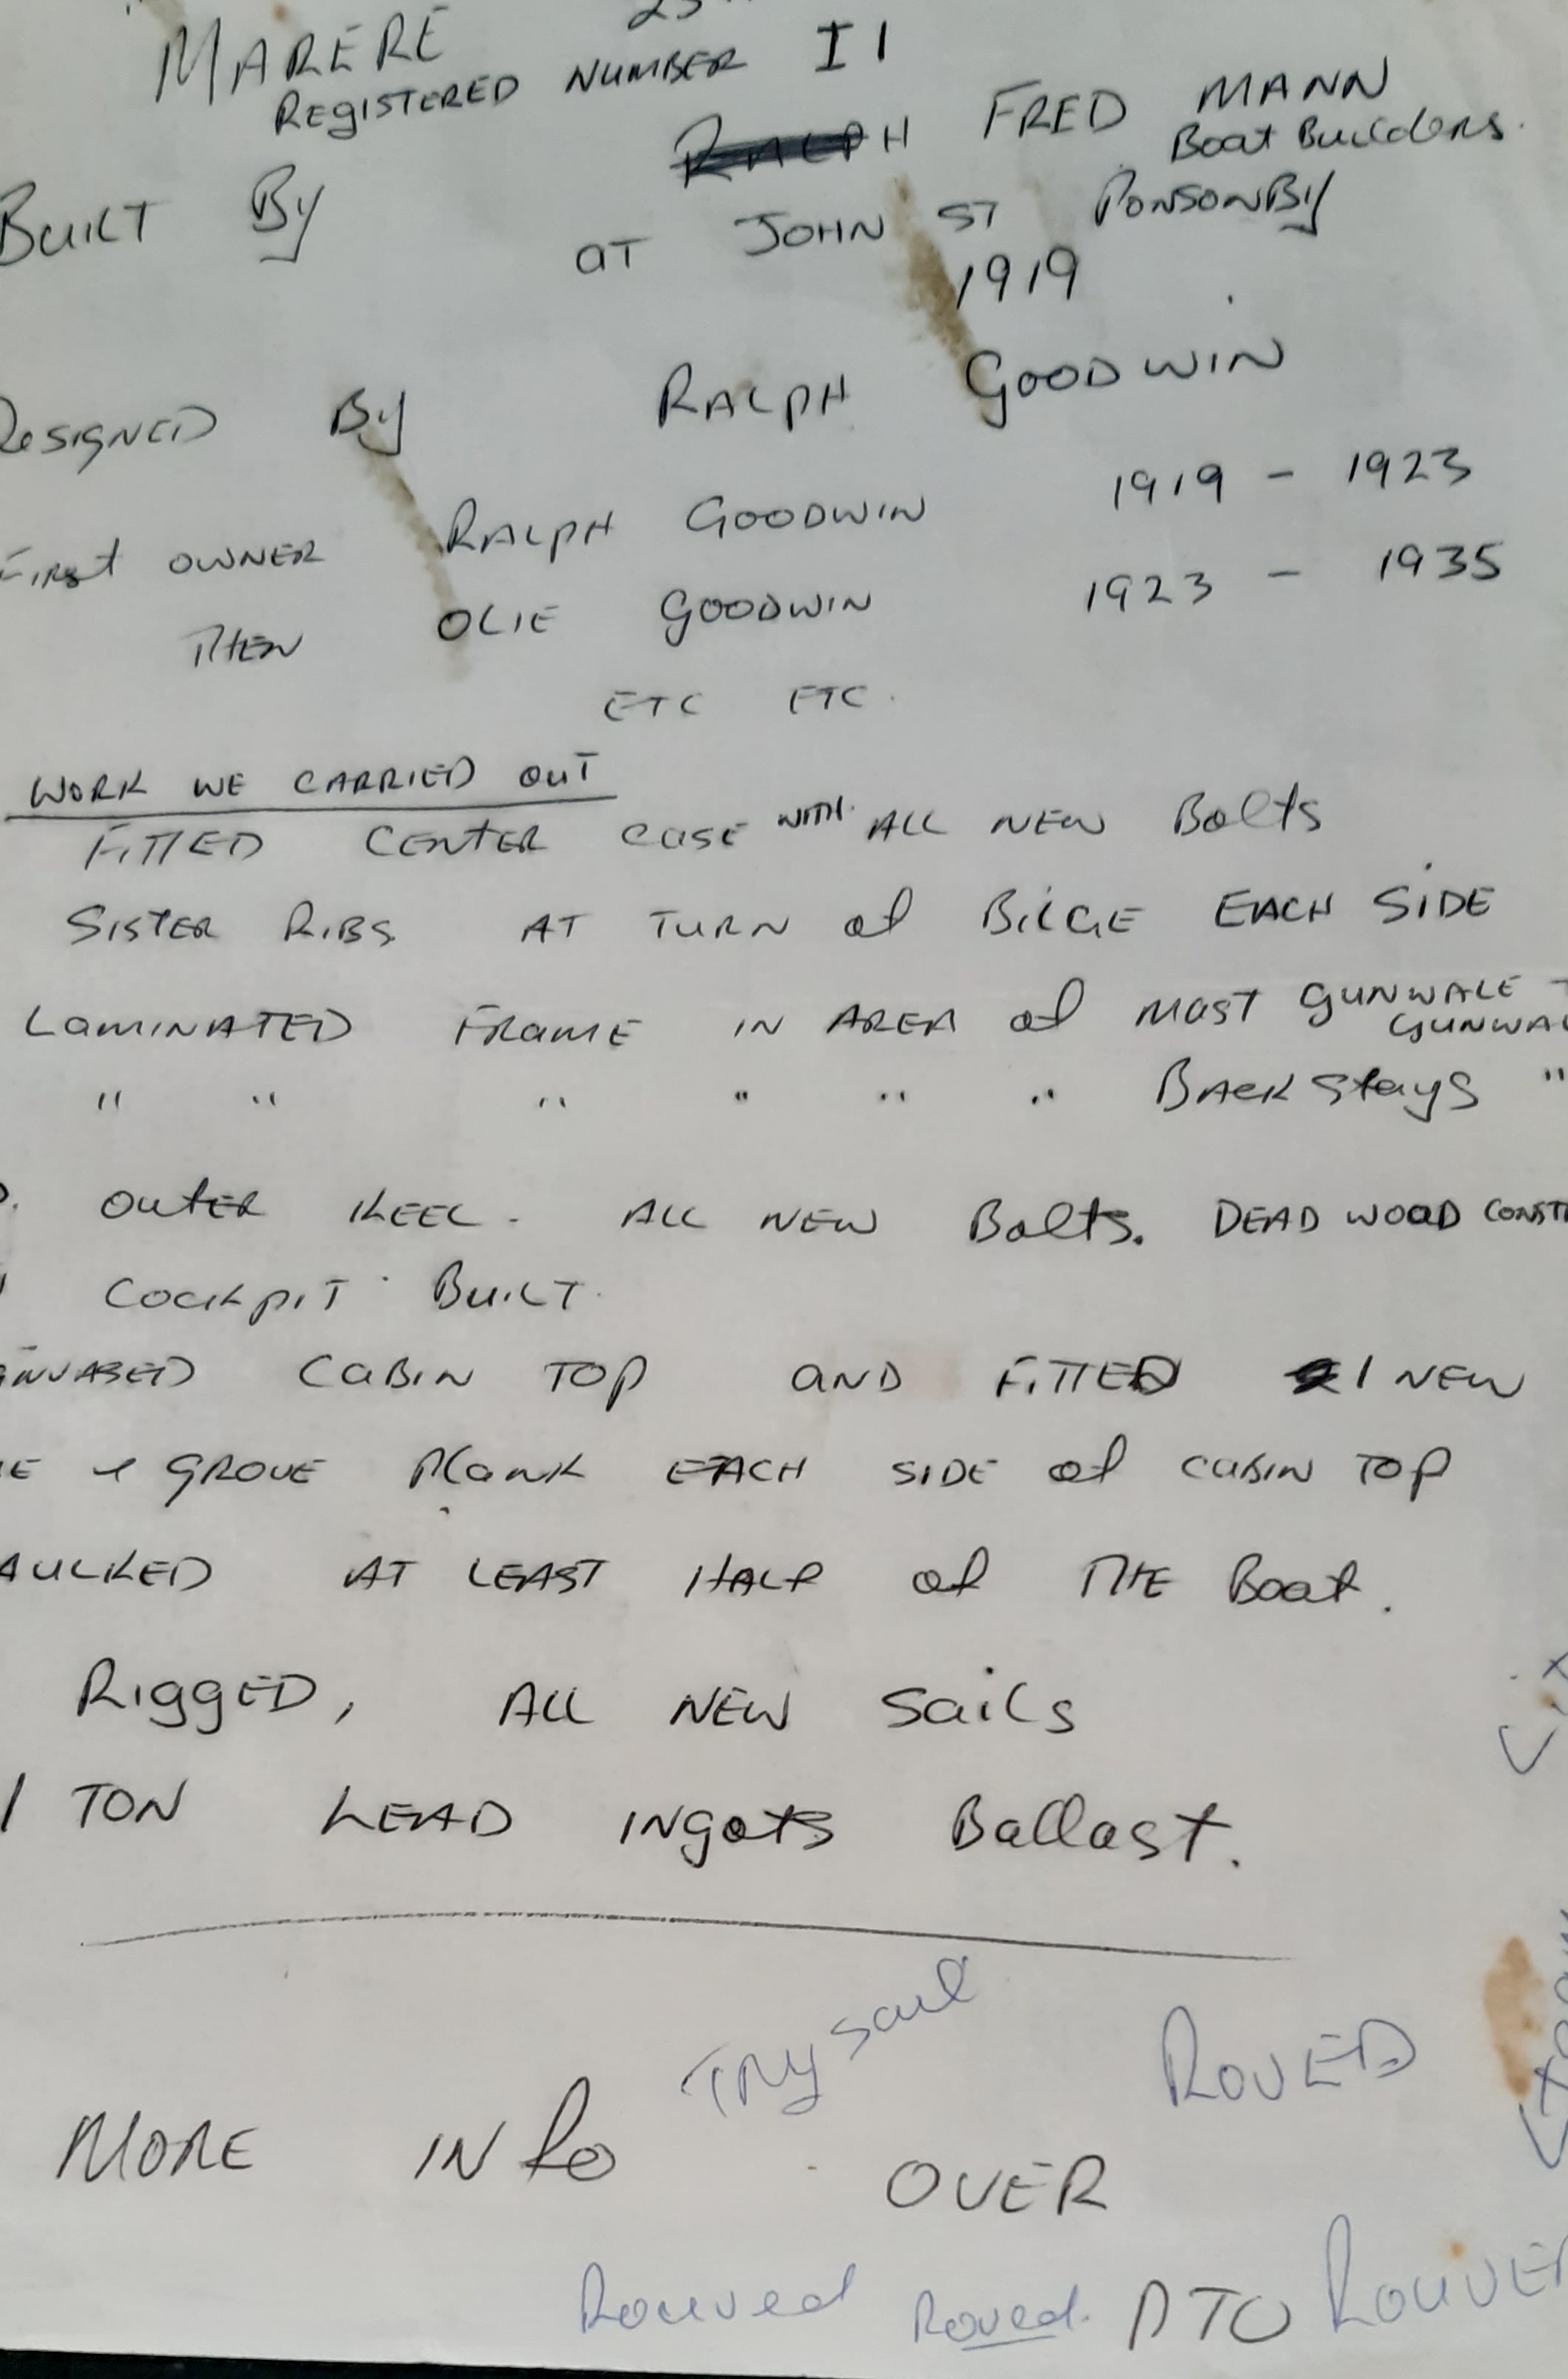 MARERE
REGISTERED NUMBER I1
FRED MANN
Boat Builders.
BUILT By
at JOHN ST PONSONBY
1919
DESIGNED By RALPH GOODWIN
FIRst OWNER RALPH GOODWIN 1919 - 1923
THEN OLIE GOODWIN 1923 - 1935
ETC ETC.
WORK WE CARRIED OUT
FITTED CENtER CASE WITH ALL NEW Bolts
SISTER RIBS AT TURN of BILGE EACH SIDE
LAMINATED FRAME IN AREA of MAST GUNWALE -
GUNWA
" " " " " " BACK Stays "
OUtER KEEL. ALL NEW Bolts. DEAD WOOD CONST
COCKPIT BUILT.
ANVASED CABIN TOP AND FITTED 1 NEW
E & GROVE PLANK EACH SIDE of CABIN TOP
AULKED AT LEAST HALF of THE Boat.
RIGGED, ALL NEW Sails
1 TON LEAD INgots Ballast.
TRysail
ROVED
MORE INfo
OVER
Rouved Roved. PTO ROUVE